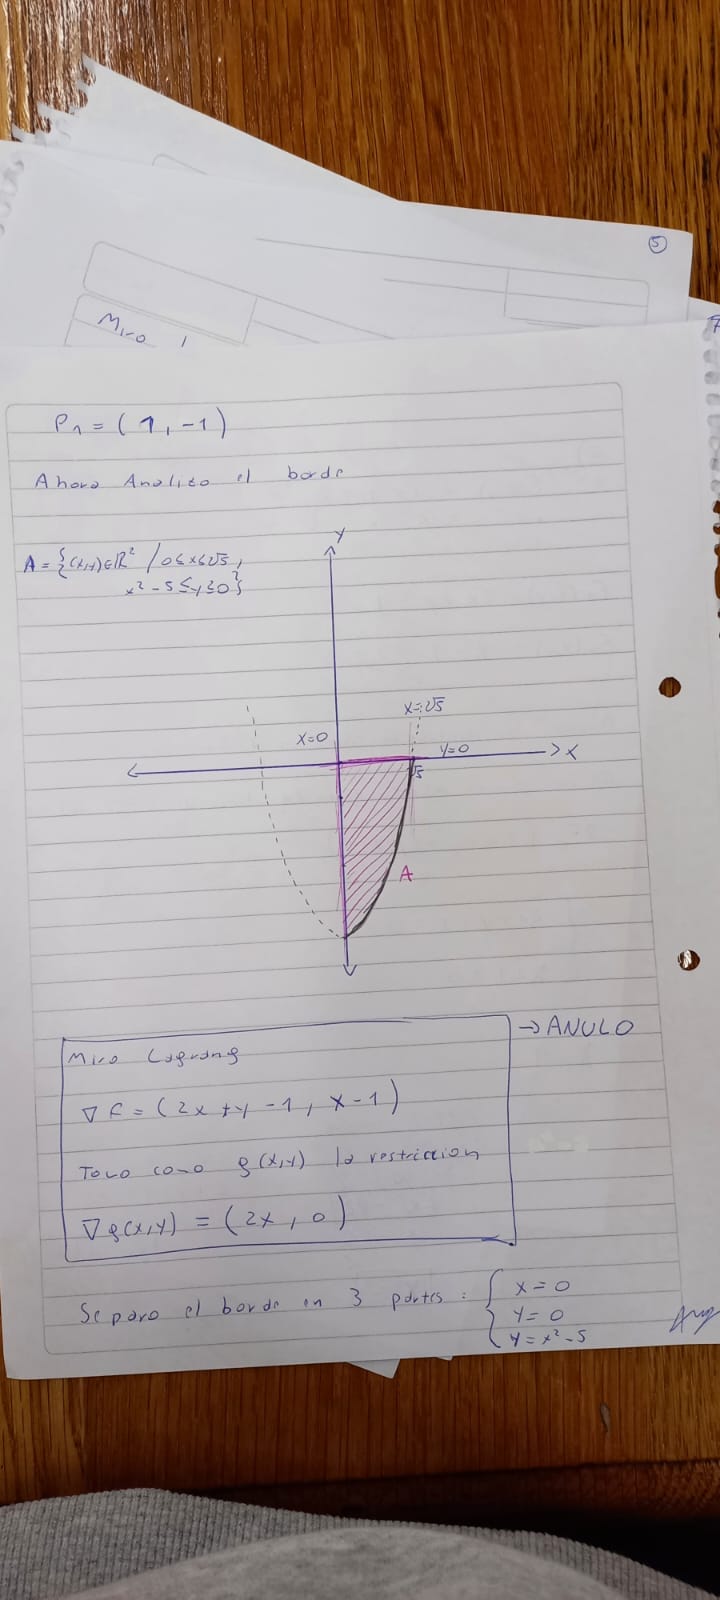 5
Miro 1
7
P₁ = (1, -1)
Ahora Analizo el borde
A = {(x,y)∈ℝ² / 0≤x≤√5,
x² - 5 ≤ y ≤ 0}
y
x=√5
x=0
y=0
x
√5
A
Miro Lagrang
→ ANULO
∇f = (2x + y - 1, x - 1)
Tomo como g(x,y) la restriccion
∇g(x,y) = (2x, 0)
Separo el borde en 3 partes: { x = 0
y = 0
y = x² - 5